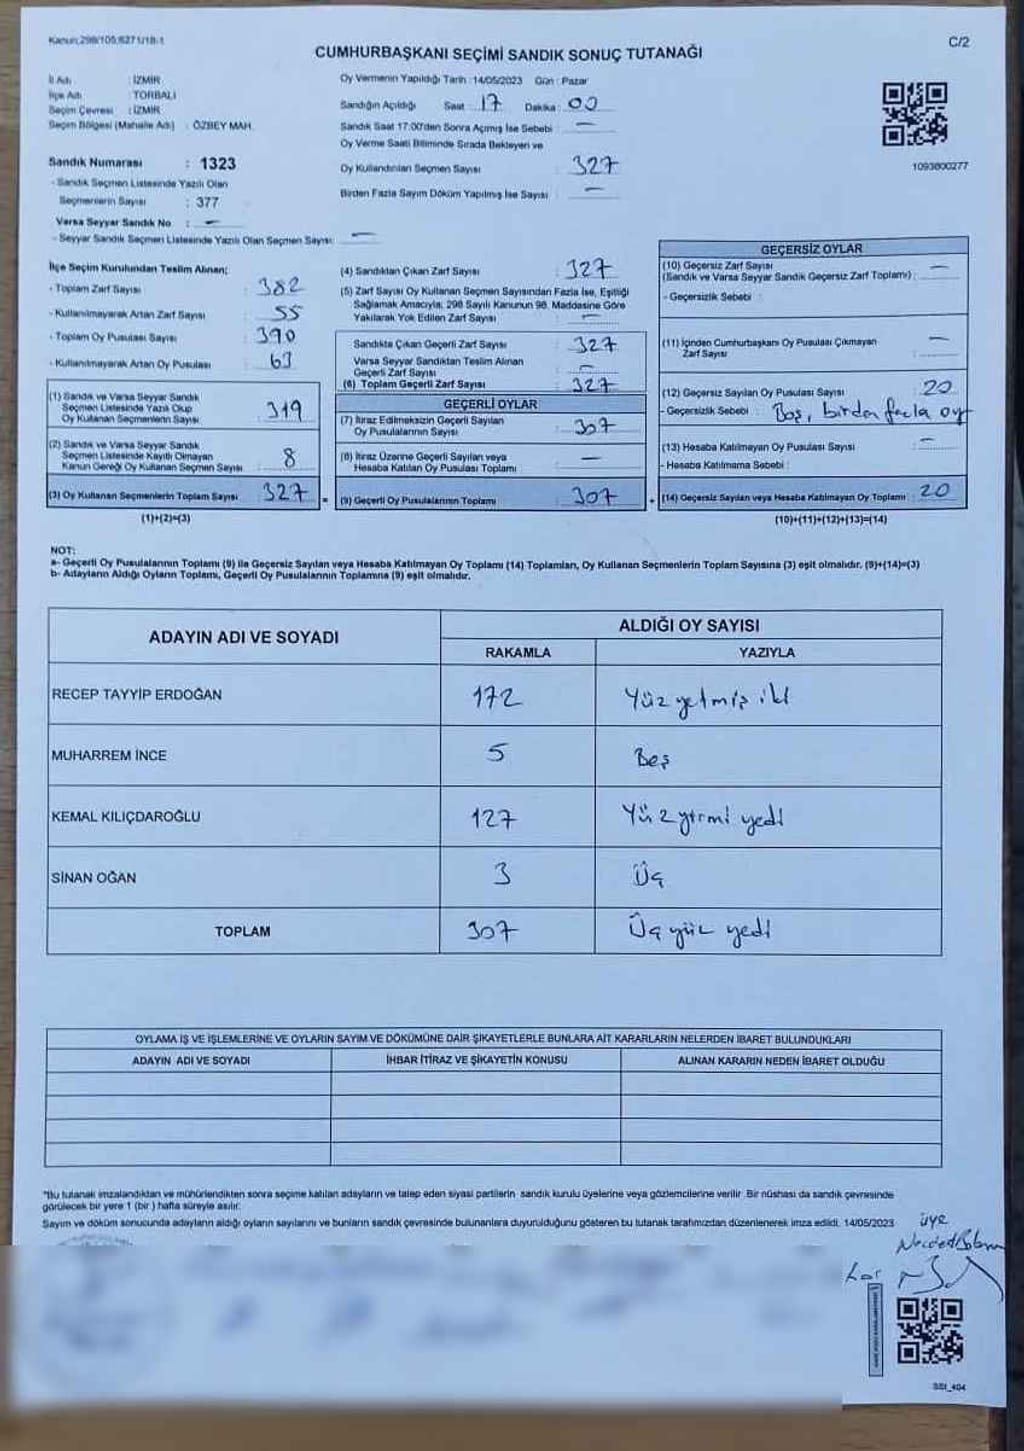 Kanun:298/105;6271/18-1
C/2
CUMHURBAŞKANI SEÇİMİ SANDIK SONUÇ TUTANAĞI
İl Adı : İZMİR
İlçe Adı : TORBALI
Seçim Çevresi : İZMİR
Seçim Bölgesi (Mahalle Adı) : ÖZBEY MAH.
Sandık Numarası : 1323
- Sandık Seçmen Listesinde Yazılı Olan
Seçmenlerin Sayısı : 377
Varsa Seyyar Sandık No : —
- Seyyar Sandık Seçmen Listesinde Yazılı Olan Seçmen Sayısı: —
Oy Vermenin Yapıldığı Tarih : 14/05/2023 Gün : Pazar
Sandığın Açıldığı Saat : 17 Dakika : 00
Sandık Saat 17:00'den Sonra Açmış İse Sebebi : —
Oy Verme Saati Bitiminde Sırada Bekleyen ve
Oy Kullandırılan Seçmen Sayısı : 327
Birden Fazla Sayım Döküm Yapılmış İse Sayısı : —
1093800277
İlçe Seçim Kurulundan Teslim Alınan;
- Toplam Zarf Sayısı : 382
- Kullanılmayarak Artan Zarf Sayısı : 55
- Toplam Oy Pusulası Sayısı : 390
- Kullanılmayarak Artan Oy Pusulası : 63
(1) Sandık ve Varsa Seyyar Sandık
Seçmen Listesinde Yazılı Olup
Oy Kullanan Seçmenlerin Sayısı : 319
(2) Sandık ve Varsa Seyyar Sandık
Seçmen Listesinde Kayıtlı Olmayan
Kanun Gereği Oy Kullanan Seçmen Sayısı : 8
(3) Oy Kullanan Seçmenlerin Toplam Sayısı : 327
(1)+(2)=(3)
(4) Sandıktan Çıkan Zarf Sayısı : 327
(5) Zarf Sayısı Oy Kullanan Seçmen Sayısından Fazla İse, Eşitliği
Sağlamak Amacıyla; 298 Sayılı Kanunun 98. Maddesine Göre
Yakılarak Yok Edilen Zarf Sayısı : —
Sandıkta Çıkan Geçerli Zarf Sayısı : 327
Varsa Seyyar Sandıktan Teslim Alınan
Geçerli Zarf Sayısı : —
(6) Toplam Geçerli Zarf Sayısı : 327
GEÇERLİ OYLAR
(7) İtiraz Edilmeksizin Geçerli Sayılan
Oy Pusulalarının Sayısı : 307
(8) İtiraz Üzerine Geçerli Sayılan veya
Hesaba Katılan Oy Pusulası Toplamı : —
= (9) Geçerli Oy Pusulalarının Toplamı : 307
GEÇERSİZ OYLAR
(10) Geçersiz Zarf Sayısı
(Sandık ve Varsa Seyyar Sandık Geçersiz Zarf Toplamı) : —
- Geçersizlik Sebebi :
(11) İçinden Cumhurbaşkanı Oy Pusulası Çıkmayan
Zarf Sayısı : —
(12) Geçersiz Sayılan Oy Pusulası Sayısı : 20
- Geçersizlik Sebebi : Boş, birden fazla oy
(13) Hesaba Katılmayan Oy Pusulası Sayısı : —
- Hesaba Katılmama Sebebi :
+ (14) Geçersiz Sayılan veya Hesaba Katılmayan Oy Toplamı : 20
(10)+(11)+(12)+(13)=(14)
NOT:
a- Geçerli Oy Pusulalarının Toplamı (9) ila Geçersiz Sayılan veya Hesaba Katılmayan Oy Toplamı (14) Toplamları, Oy Kullanan Seçmenlerin Toplam Sayısına (3) eşit olmalıdır. (9)+(14)=(3)
b- Adayların Aldığı Oyların Toplamı, Geçerli Oy Pusulalarının Toplamına (9) eşit olmalıdır.
ADAYIN ADI VE SOYADI
ALDIĞI OY SAYISI
RAKAMLA YAZIYLA
RECEP TAYYİP ERDOĞAN 172 Yüz yetmiş iki
MUHARREM İNCE 5 Beş
KEMAL KILIÇDAROĞLU 127 Yüz yirmi yedi
SİNAN OĞAN 3 Üç
TOPLAM 307 Üç yüz yedi
OYLAMA İŞ VE İŞLEMLERİNE VE OYLARIN SAYIM VE DÖKÜMÜNE DAİR ŞİKAYETLERLE BUNLARA AİT KARARLARIN NELERDEN İBARET BULUNDUKLARI
ADAYIN ADI VE SOYADI İHBAR İTİRAZ VE ŞİKAYETİN KONUSU ALINAN KARARIN NEDEN İBARET OLDUĞU
"Bu tutanak imzalandıktan ve mühürlendikten sonra seçime katılan adayların ve talep eden siyasi partilerin sandık kurulu üyelerine veya gözlemcilerine verilir. Bir nüshası da sandık çevresinde
görülecek bir yere 1 (bir) hafta süreyle asılır.
Sayım ve döküm sonucunda adayların aldığı oyların sayılarını ve bunların sandık çevresinde bulunanlara duyurulduğunu gösteren bu tutanak tarafımızdan düzenlenerek imza edildi. 14/05/2023
üye
SSt_404